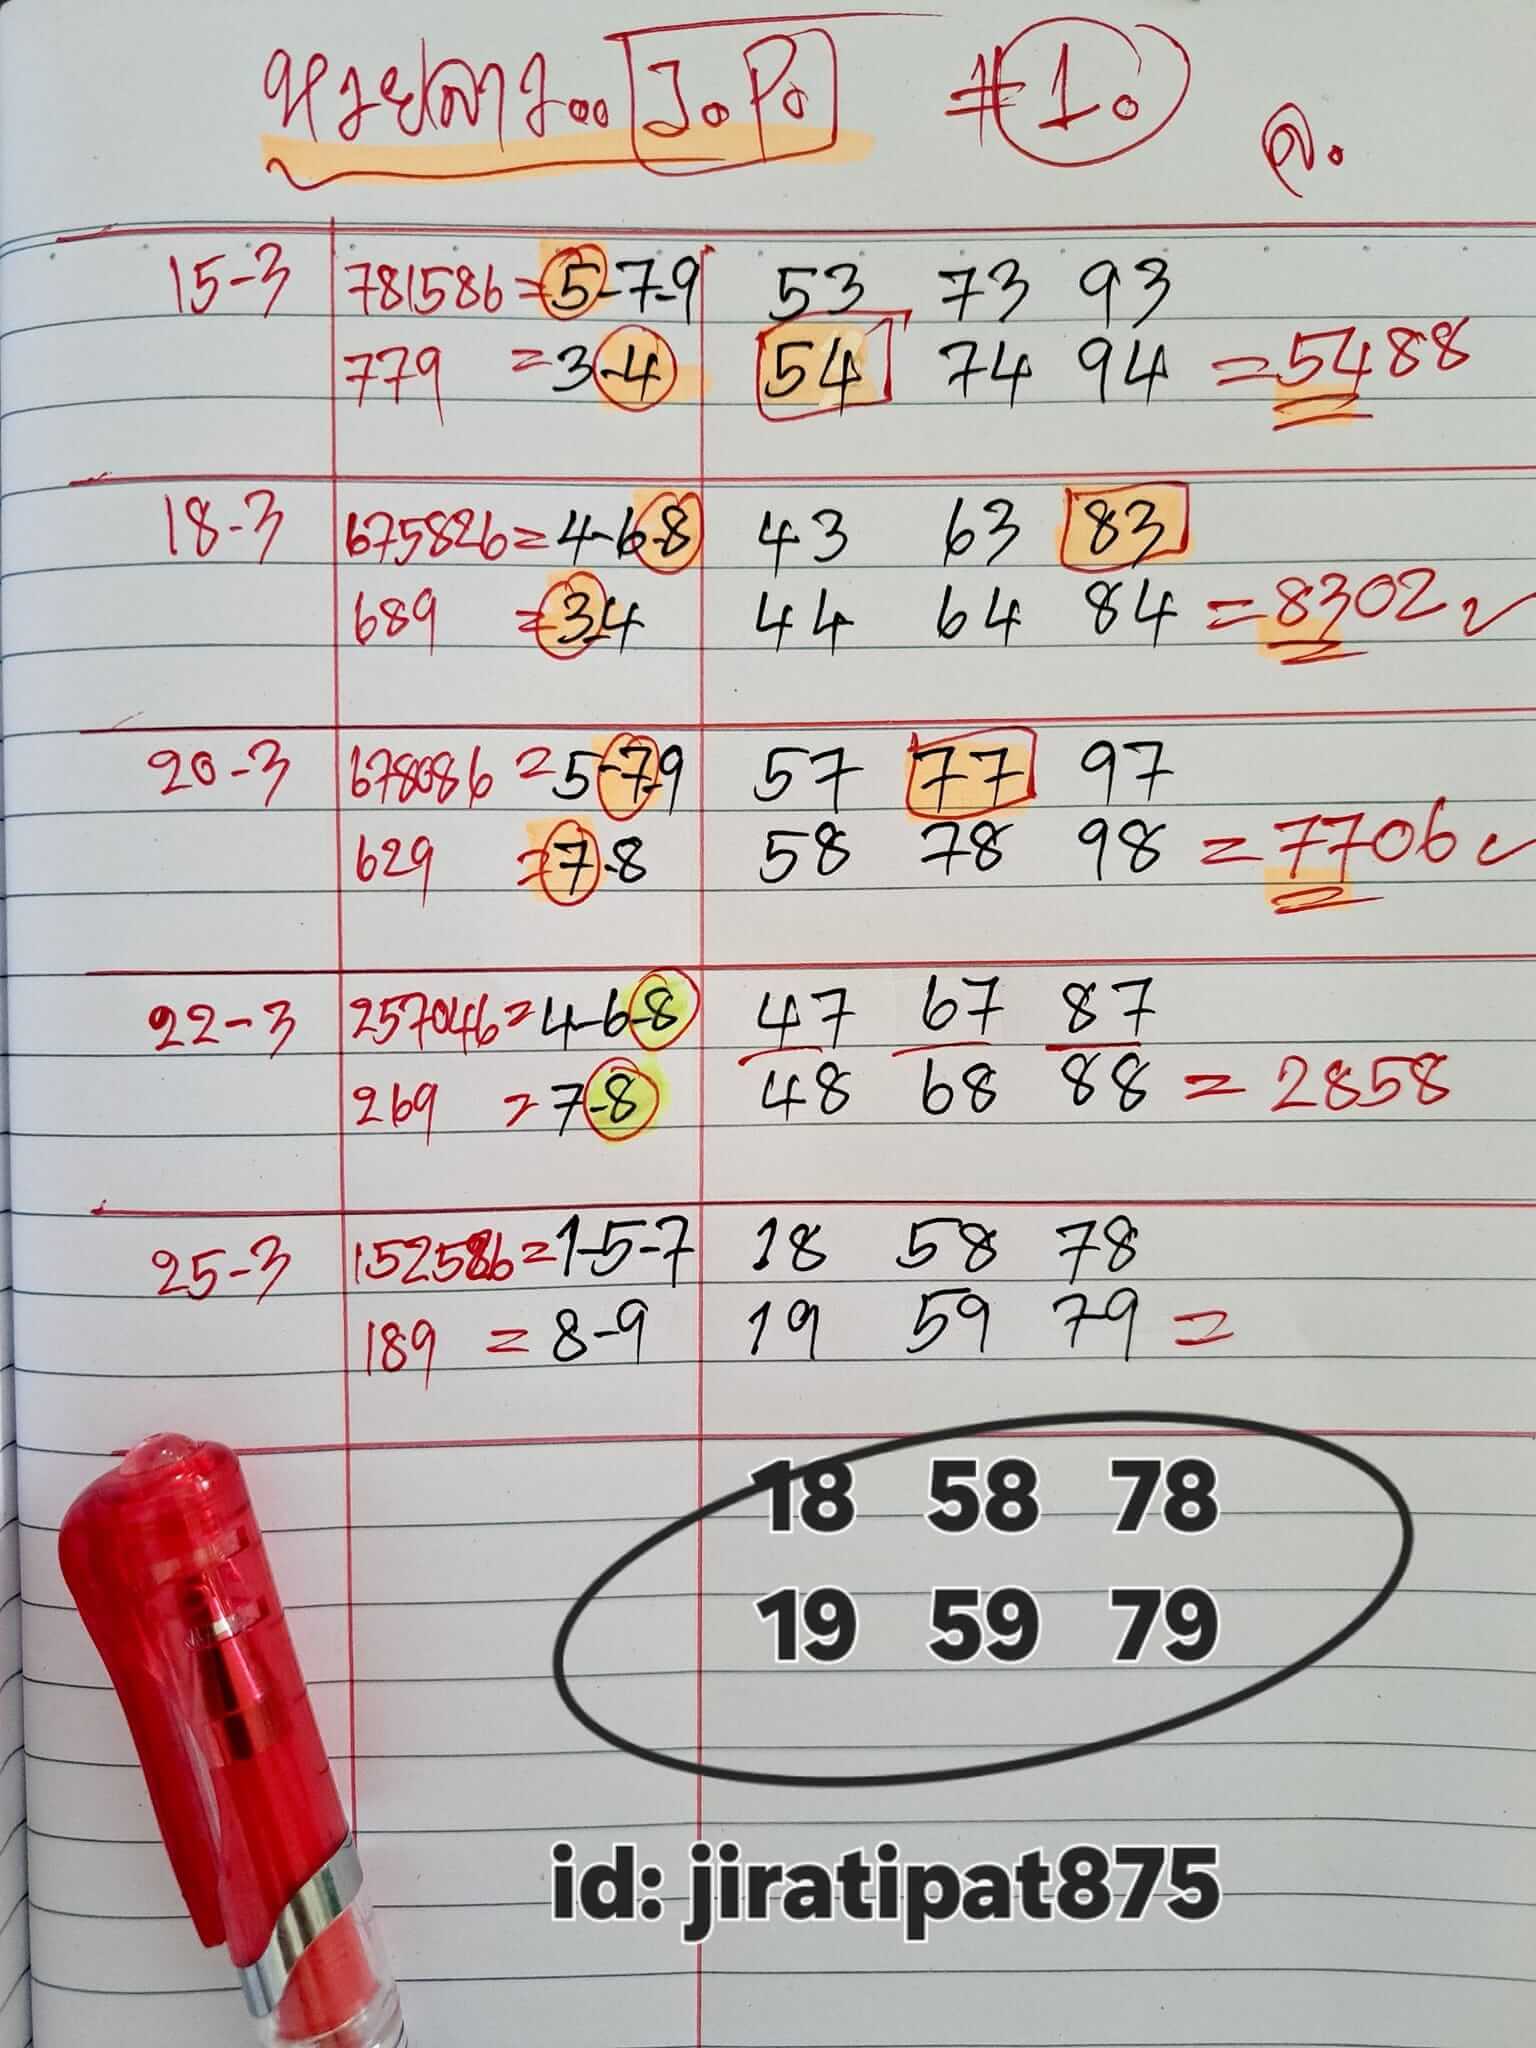 หวยลาว.. J.P. #1.
ล.
15-3 781586=5-7-9 53 73 93
779 =3-4 54 74 94 =5488
18-3 675826=4-6-8 43 63 83
689 =3-4 44 64 84 =8302✓
20-3 678086=5-7-9 57 77 97
629 =7-8 58 78 98 =7706✓
22-3 257046=4-6-8 47 67 87
269 =7-8 48 68 88 =2858
25-3 152586=1-5-7 18 58 78
189 =8-9 19 59 79 =
18 58 78
19 59 79
id: jiratipat875